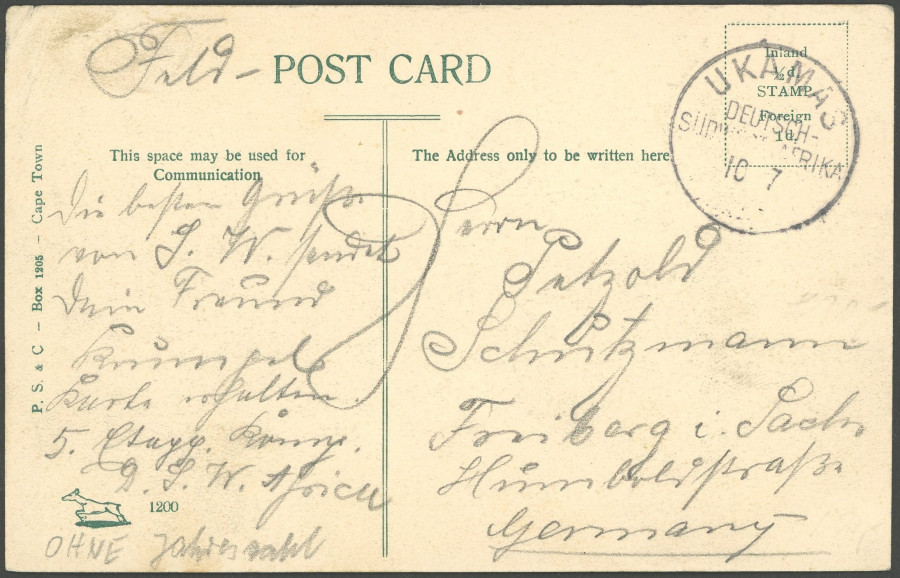 Feld- POST CARD
Inland
½d.
STAMP
Foreign
1d.
UKAMAS
DEUTSCH-
SÜDWESTAFRIKA
10 7
This space may be used for
Communication
The Address only to be written here
P. S. & C – Box 1205 – Cape Town
Die besten Grüße
von S. W. sendet
Dein Freund
Krumpel
Karte erhalten.
5. Etapp. Komp.
D. S. W. Africa
1200
OHNE Jahreszahl
Herrn
Petzold
Schutzmann
Freiberg i. Sachs
Humboldstraße
Germany